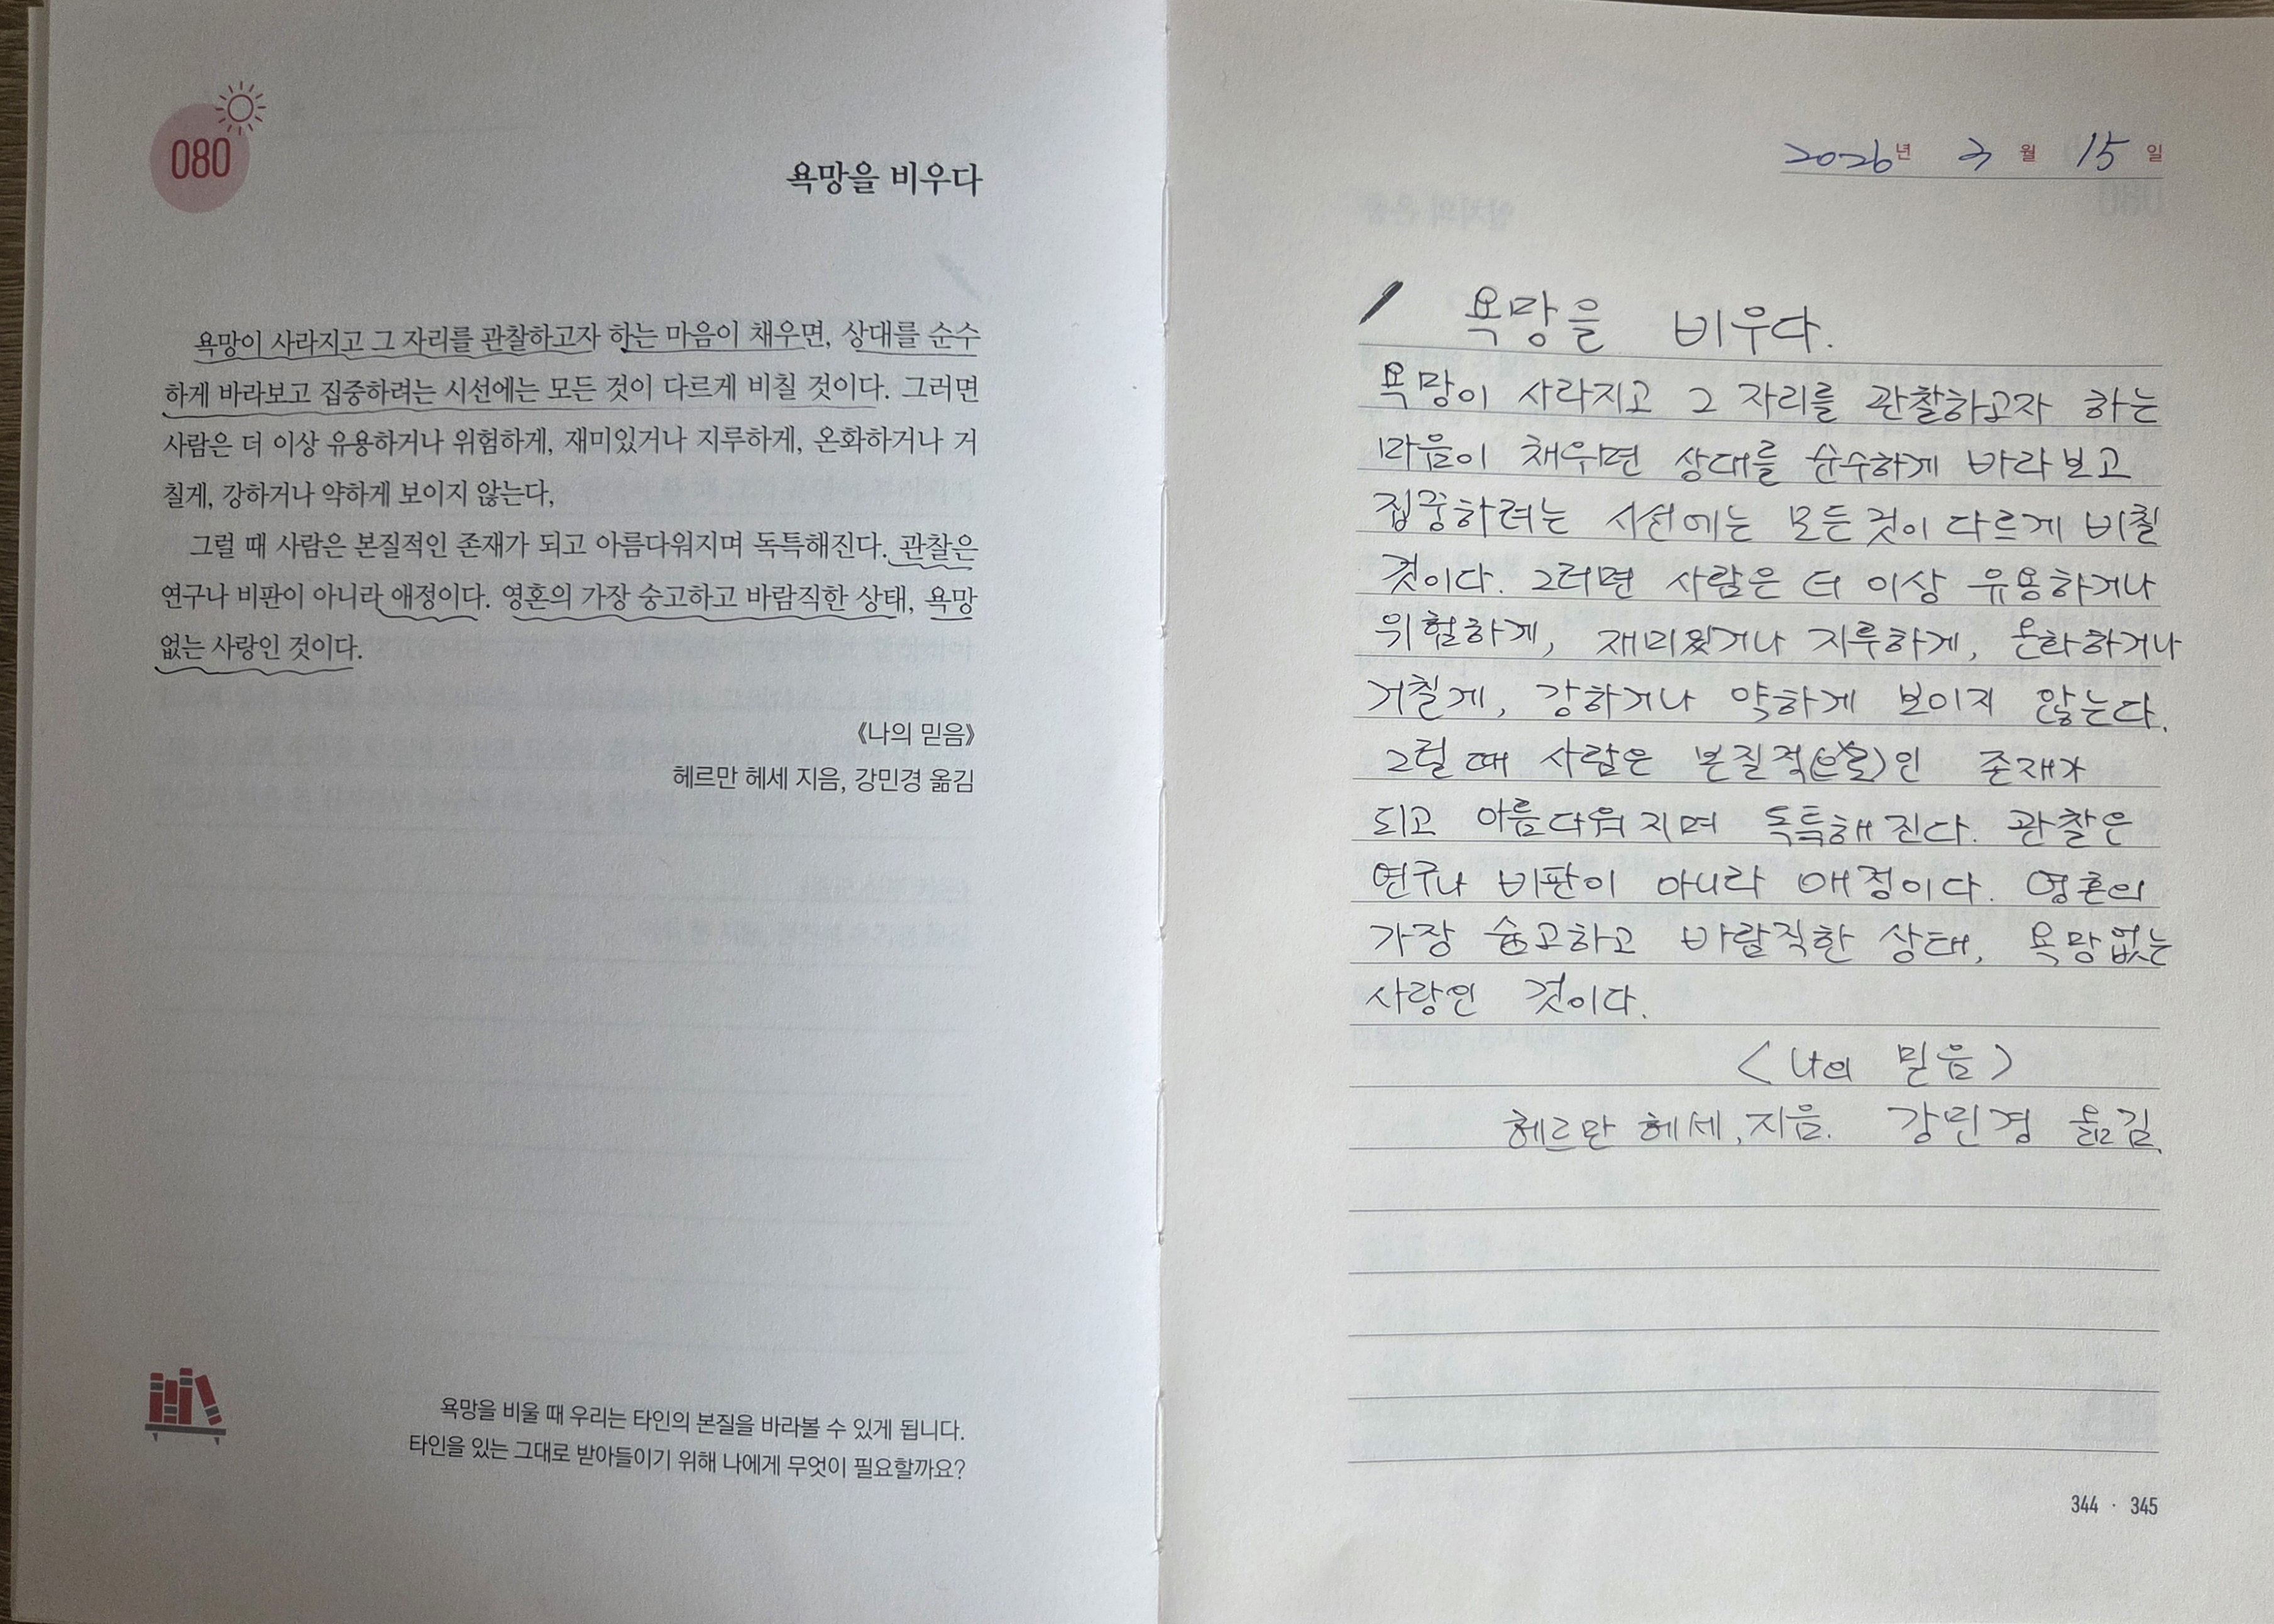 080
욕망을 비우다
욕망이 사라지고 그 자리를 관찰하고자 하는 마음이 채우면, 상대를 순수
하게 바라보고 집중하려는 시선에는 모든 것이 다르게 비칠 것이다. 그러면
사람은 더 이상 유용하거나 위험하게, 재미있거나 지루하게, 온화하거나 거
칠게, 강하거나 약하게 보이지 않는다,
그럴 때 사람은 본질적인 존재가 되고 아름다워지며 독특해진다. 관찰은
연구나 비판이 아니라 애정이다. 영혼의 가장 숭고하고 바람직한 상태, 욕망
없는 사랑인 것이다.
《나의 믿음》
헤르만 헤세 지음, 강민경 옮김
욕망을 비울 때 우리는 타인의 본질을 바라볼 수 있게 됩니다.
타인을 있는 그대로 받아들이기 위해 나에게 무엇이 필요할까요?
2026년 3월 15일
욕망을 비우다.
욕망이 사라지고 그 자리를 관찰하고자 하는
마음이 채우면 상대를 순수하게 바라보고
집중하려는 시선에는 모든것이 다르게 비칠
것이다. 그러면 사람은 더 이상 유용하거나
위험하게, 재미있거나 지루하게, 온화하거나
거칠게, 강하거나 약하게 보이지 않는다.
그럴 때 사람은 본질적인 존재가
되고 아름다워지며 독특해진다. 관찰은
연구나 비판이 아니라 애정이다. 영혼의
가장 숭고하고 바람직한 상태, 욕망없는
사랑인 것이다.
<나의 믿음>
헤르만 헤세, 지음. 강민경 옮김.
344 · 345